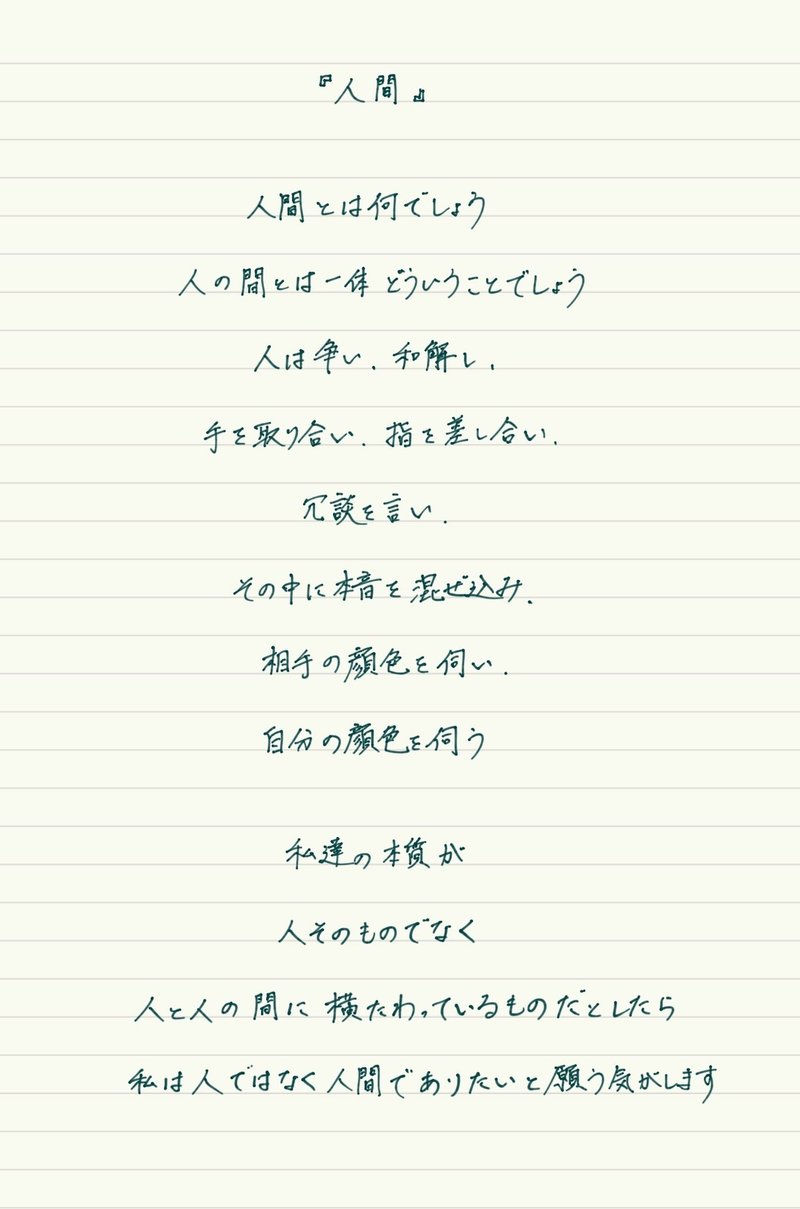 『人間』
人間とは何でしょう
人の間とは一体どういうことでしょう
人は争い、和解し、
手を取り合い、指を差し合い、
冗談を言い、
その中に本音を混ぜ込み、
相手の顔色を伺い、
自分の顔色を伺う
私達の本質が
人そのものでなく
人と人の間に横たわっているものだとしたら
私は人ではなく人間でありたいと願う気がします